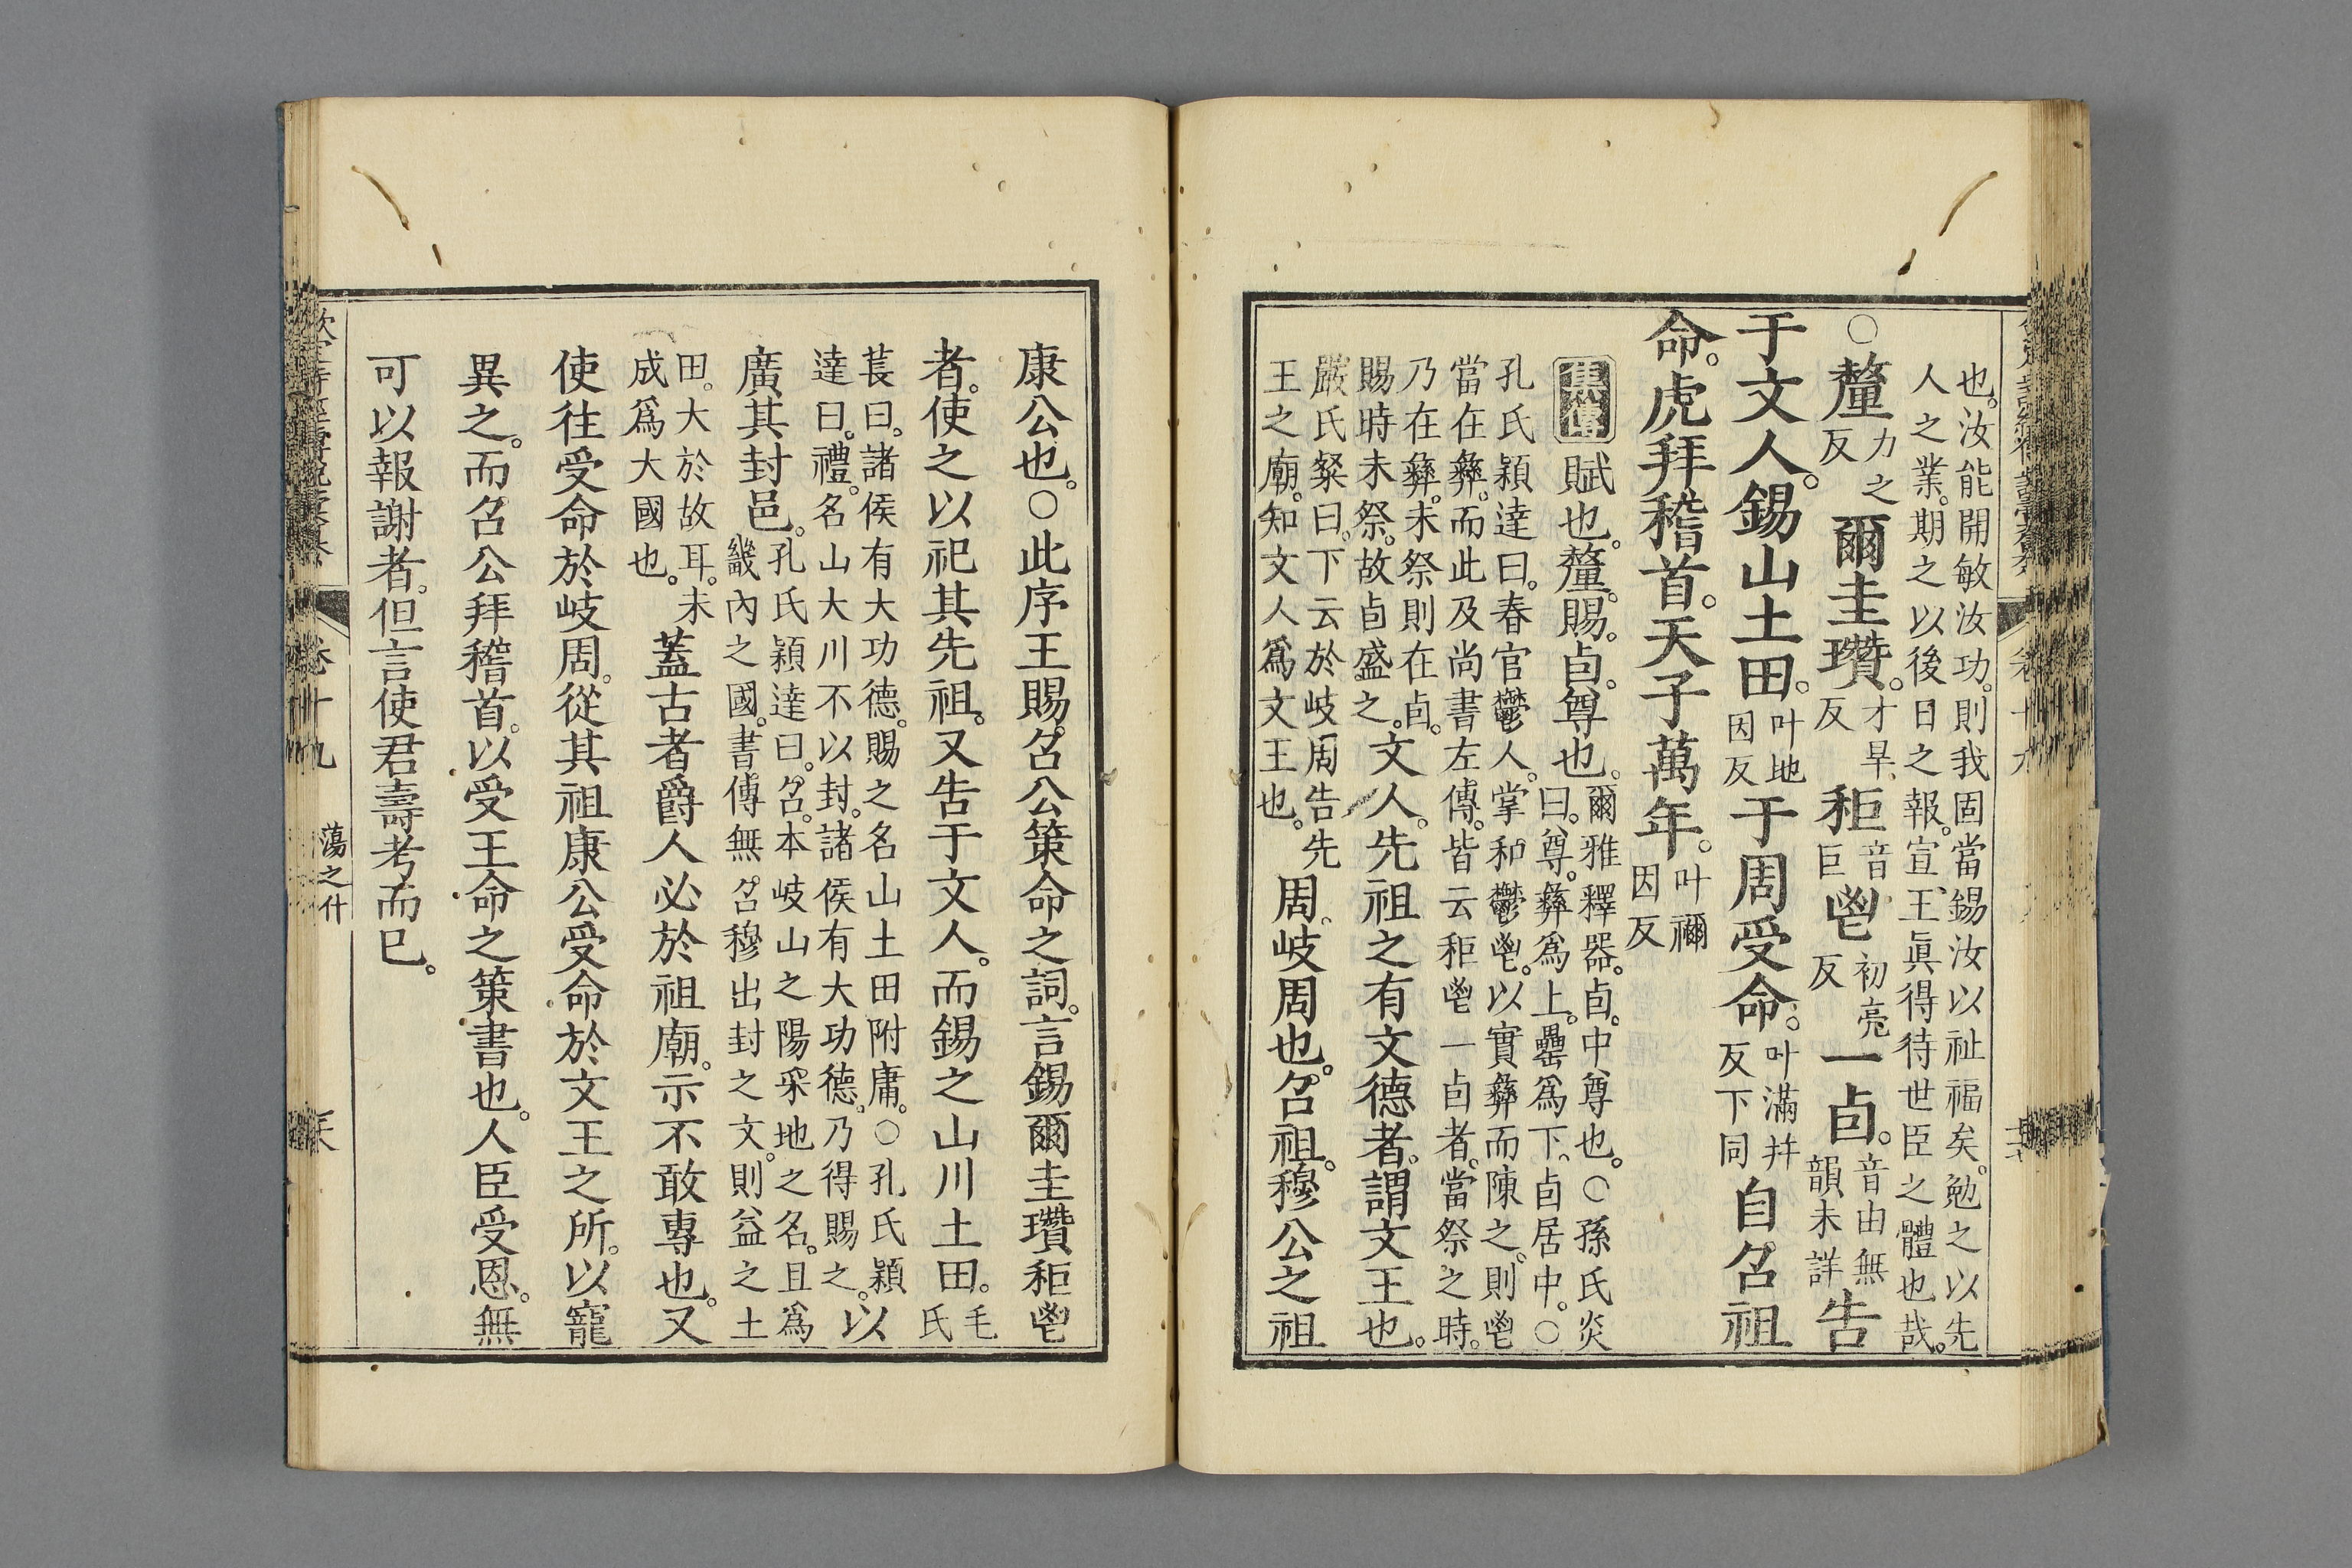 也。汝能開敏汝功。則我固當錫汝以祉福矣。勉之以先
人之業。期之以後日之報。宣王眞得待世臣之體也哉。
○釐力之反爾圭瓚。才旱反秬音巨鬯初亮反一卣。音由無韻未詳告
于文人。錫山土田。叶地因反于周受命。叶滿幷反下同自召祖
命。虎拜稽首。天子萬年。叶禰因反
集傳賦也。釐。賜。卣。尊也。爾雅釋器。卣。中尊也。○孫氏炎曰。尊。彝爲上。罍爲下。卣居中。○
孔氏穎達曰。春官鬱人。掌和鬱鬯。以實彝而陳之。則鬯
當在彝。而此及尚書左傳。皆云秬鬯一卣者。當祭之時。
乃在彝。未祭則在卣。
賜時未祭。故卣盛之。文人。先祖之有文德者。謂文王也。
嚴氏粲曰。下云於岐周告先
王之廟。知文人爲文王也。周。岐周也。召祖。穆公之祖
康公也。○此序王賜召公策命之詞。言錫爾圭瓚秬鬯
者。使之以祀其先祖。又告于文人。而錫之山川土田。毛氏
萇曰。諸侯有大功德。賜之名山土田附庸。○孔氏穎
達曰。禮。名山大川不以封。諸侯有大功德。乃得賜之。以
廣其封邑。孔氏穎達曰。召。本岐山之陽采地之名。且爲畿內之國。書傳無召穆出封之文。則益之土
田。大於故耳。未
成爲大國也。蓋古者爵人必於祖廟。示不敢專也。又
使往受命於岐周。從其祖康公受命於文王之所。以寵
異之。而召公拜稽首。以受王命之策書也。人臣受恩。無
可以報謝者。但言使君壽考而已。
卷十九
蕩之什